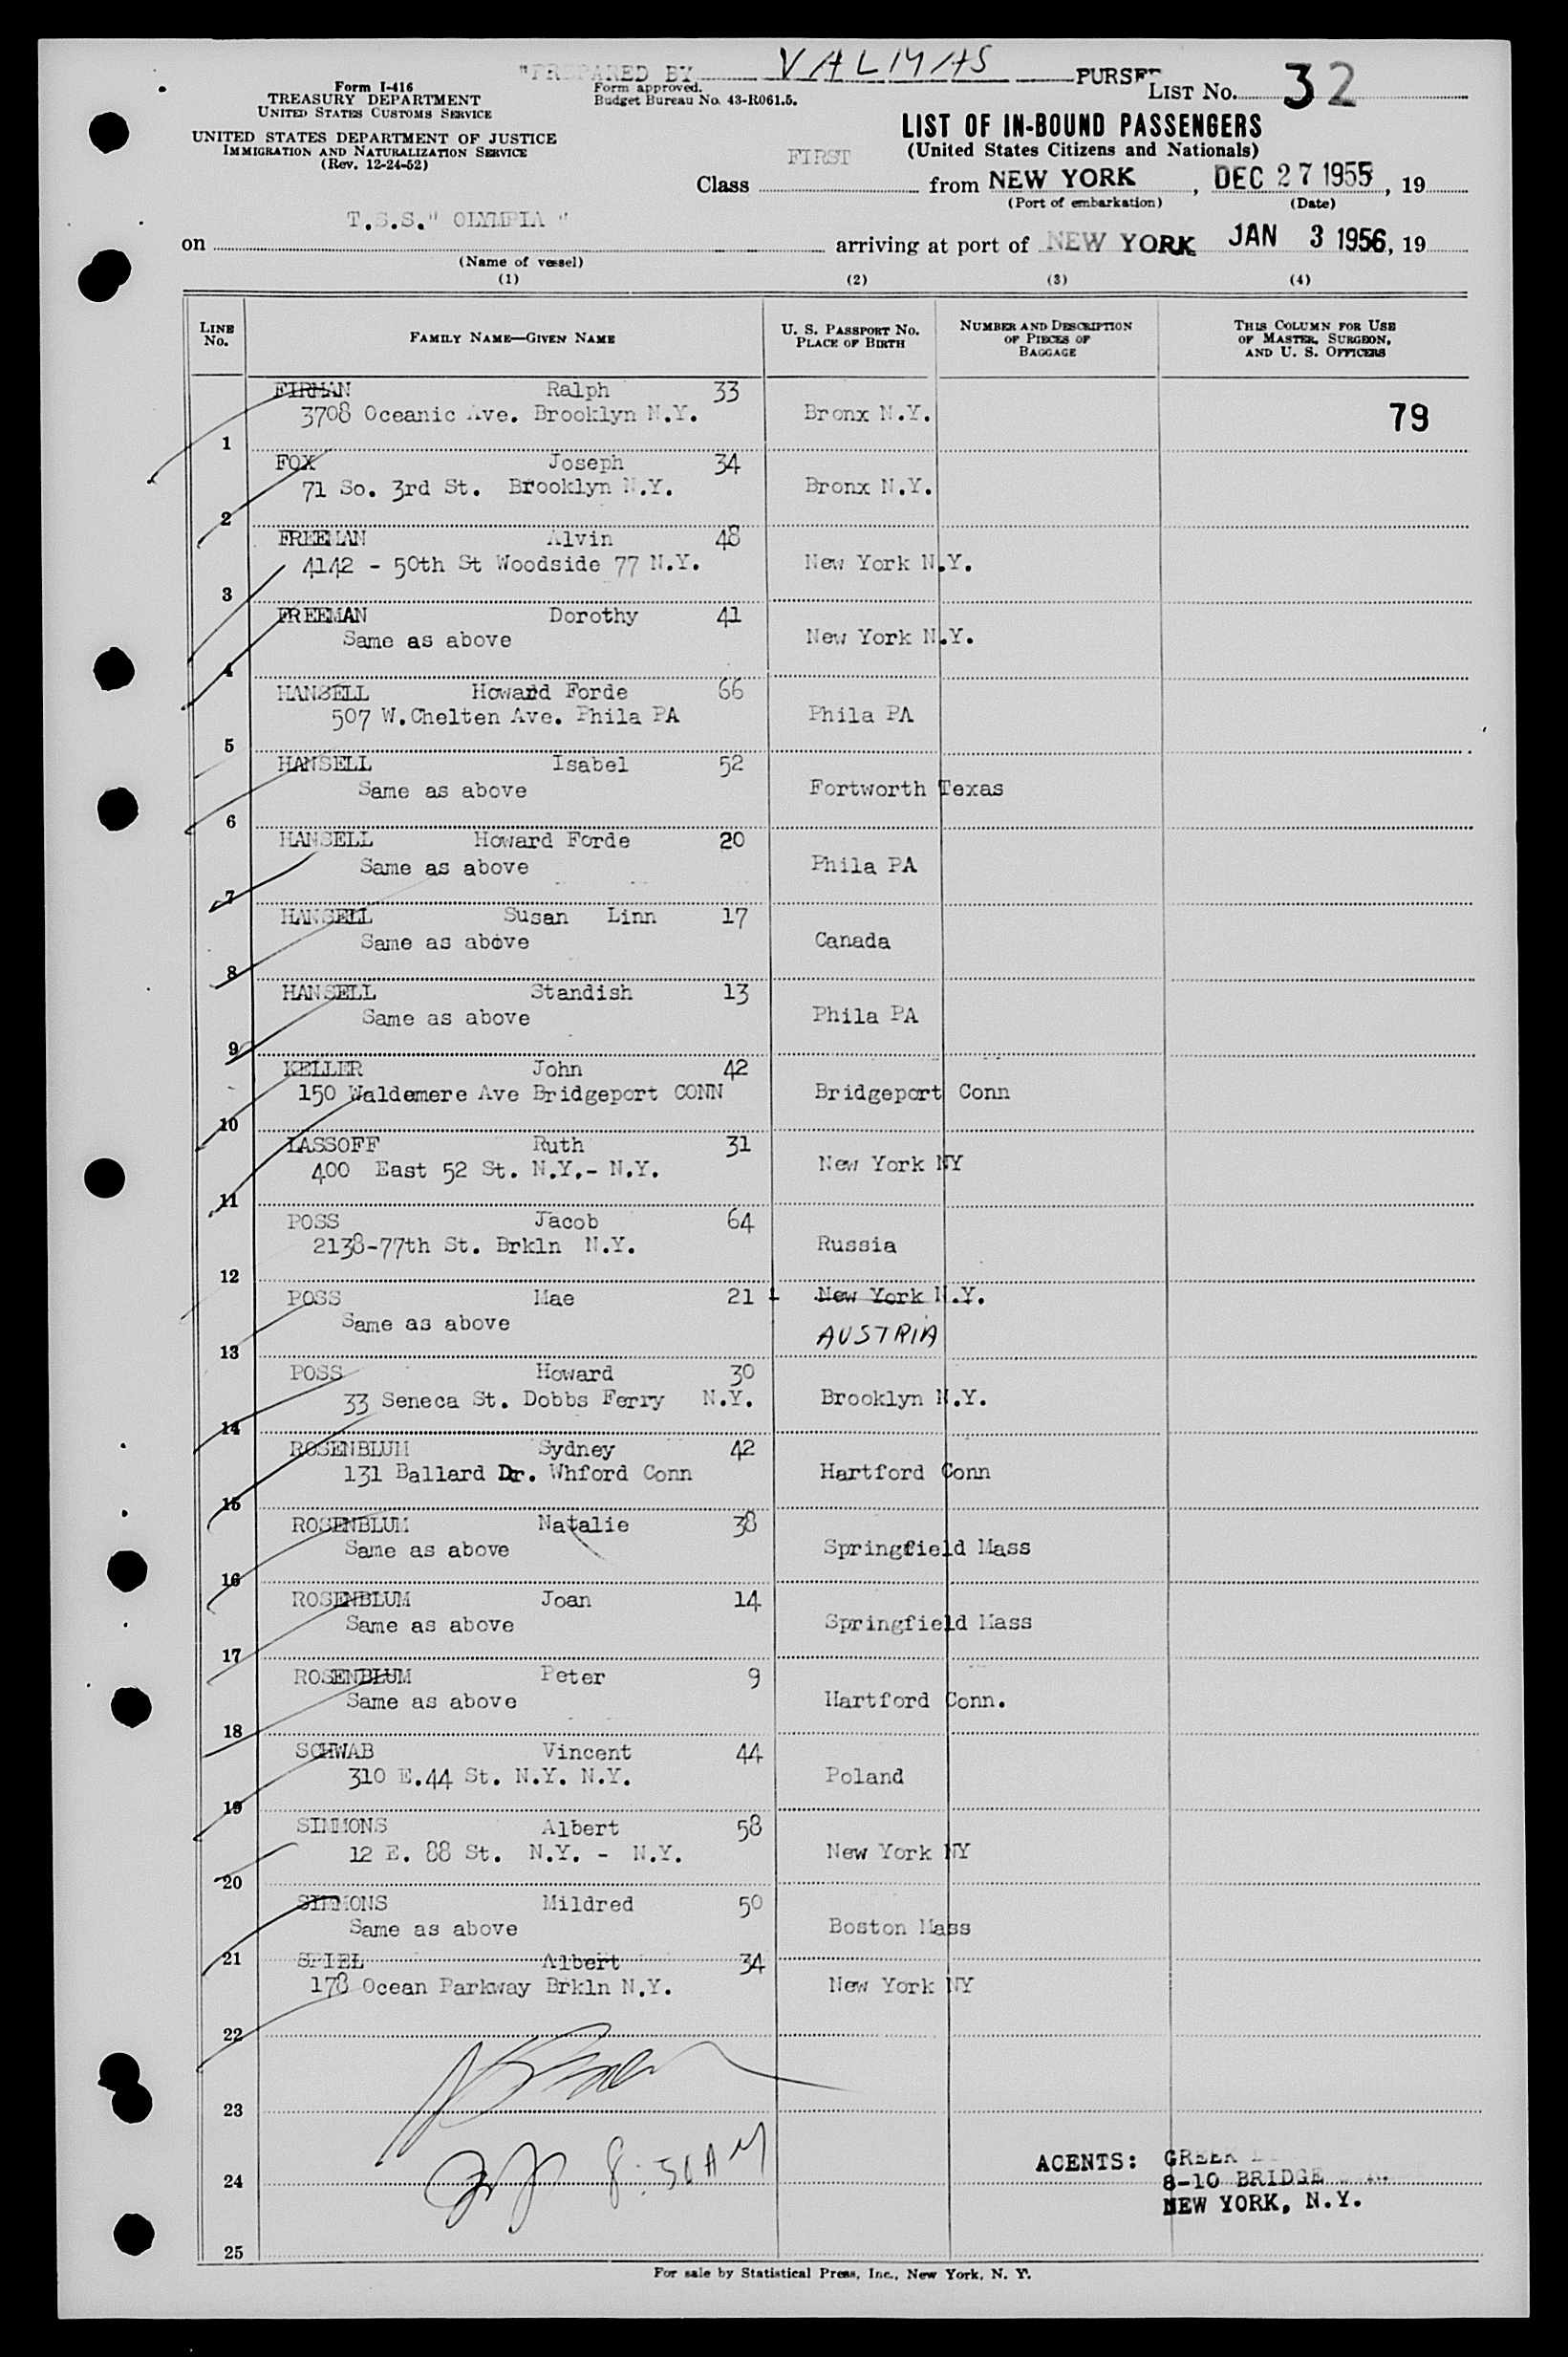 "PREPARED BY VALMAS PURSER
Form I-416
TREASURY DEPARTMENT
UNITED STATES CUSTOMS SERVICE
UNITED STATES DEPARTMENT OF JUSTICE
IMMIGRATION AND NATURALIZATION SERVICE
(Rev. 12-24-52)
Form approved.
Budget Bureau No. 43-R061.5.
LIST NO. 32
LIST OF IN-BOUND PASSENGERS
(United States Citizens and Nationals)
Class FIRST from NEW YORK, DEC 27 1955, 19
(Port of embarkation) (Date)
on T.S.S." OLYMPIA " arriving at port of NEW YORK JAN 3 1956, 19
(Name of vessel)
(1) (2) (3) (4)
LINE NO. FAMILY NAME—GIVEN NAME U. S. PASSPORT NO. PLACE OF BIRTH NUMBER AND DESCRIPTION OF PIECES OF BAGGAGE THIS COLUMN FOR USE OF MASTER, SURGEON, AND U. S. OFFICERS
FIRMAN Ralph 33
3708 Oceanic Ave. Brooklyn N.Y. Bronx N.Y. 79
1
FOX Joseph 34
71 So. 3rd St. Brooklyn N.Y. Bronx N.Y.
2
FREEMAN Alvin 48
4142 - 50th St Woodside 77 N.Y. New York N.Y.
3
FREEMAN Dorothy 41
Same as above New York N.Y.
4
HANSELL Howard Forde 66
507 W.Chelten Ave. Phila PA Phila PA
5
HANSELL Isabel 52
Same as above Fortworth Texas
6
HANSELL Howard Forde 20
Same as above Phila PA
7
HANSELL Susan Linn 17
Same as above Canada
8
HANSELL Standish 13
Same as above Phila PA
9
KELLER John 42
150 Waldemere Ave Bridgeport CONN Bridgeport Conn
10
LASSOFF Ruth 31
400 East 52 St. N.Y.- N.Y. New York NY
11
POSS Jacob 64
2138-77th St. Brkln N.Y. Russia
12
POSS Mae 21 New York N.Y.
Same as above AUSTRIA
13
POSS Howard 30
33 Seneca St. Dobbs Ferry N.Y. Brooklyn N.Y.
14
ROSENBLUM Sydney 42
131 Ballard Dr. Whford Conn Hartford Conn
15
ROSENBLUM Natalie 38
Same as above Springfield Mass
16
ROSENBLUM Joan 14
Same as above Springfield Mass
17
ROSENBLUM Peter 9
Same as above Hartford Conn.
18
SCHWAB Vincent 44
310 E.44 St. N.Y. N.Y. Poland
19
SIMMONS Albert 58
12 E. 88 St. N.Y. - N.Y. New York NY
20
SIMMONS Mildred 50
Same as above Boston Mass
21
SPIEL Albert 34
178 Ocean Parkway Brkln N.Y. New York NY
22
23
8:50 AM
24
AGENTS: GREEK
8-10 BRIDGE
NEW YORK, N.Y.
25
For sale by Statistical Press, Inc., New York, N. Y.